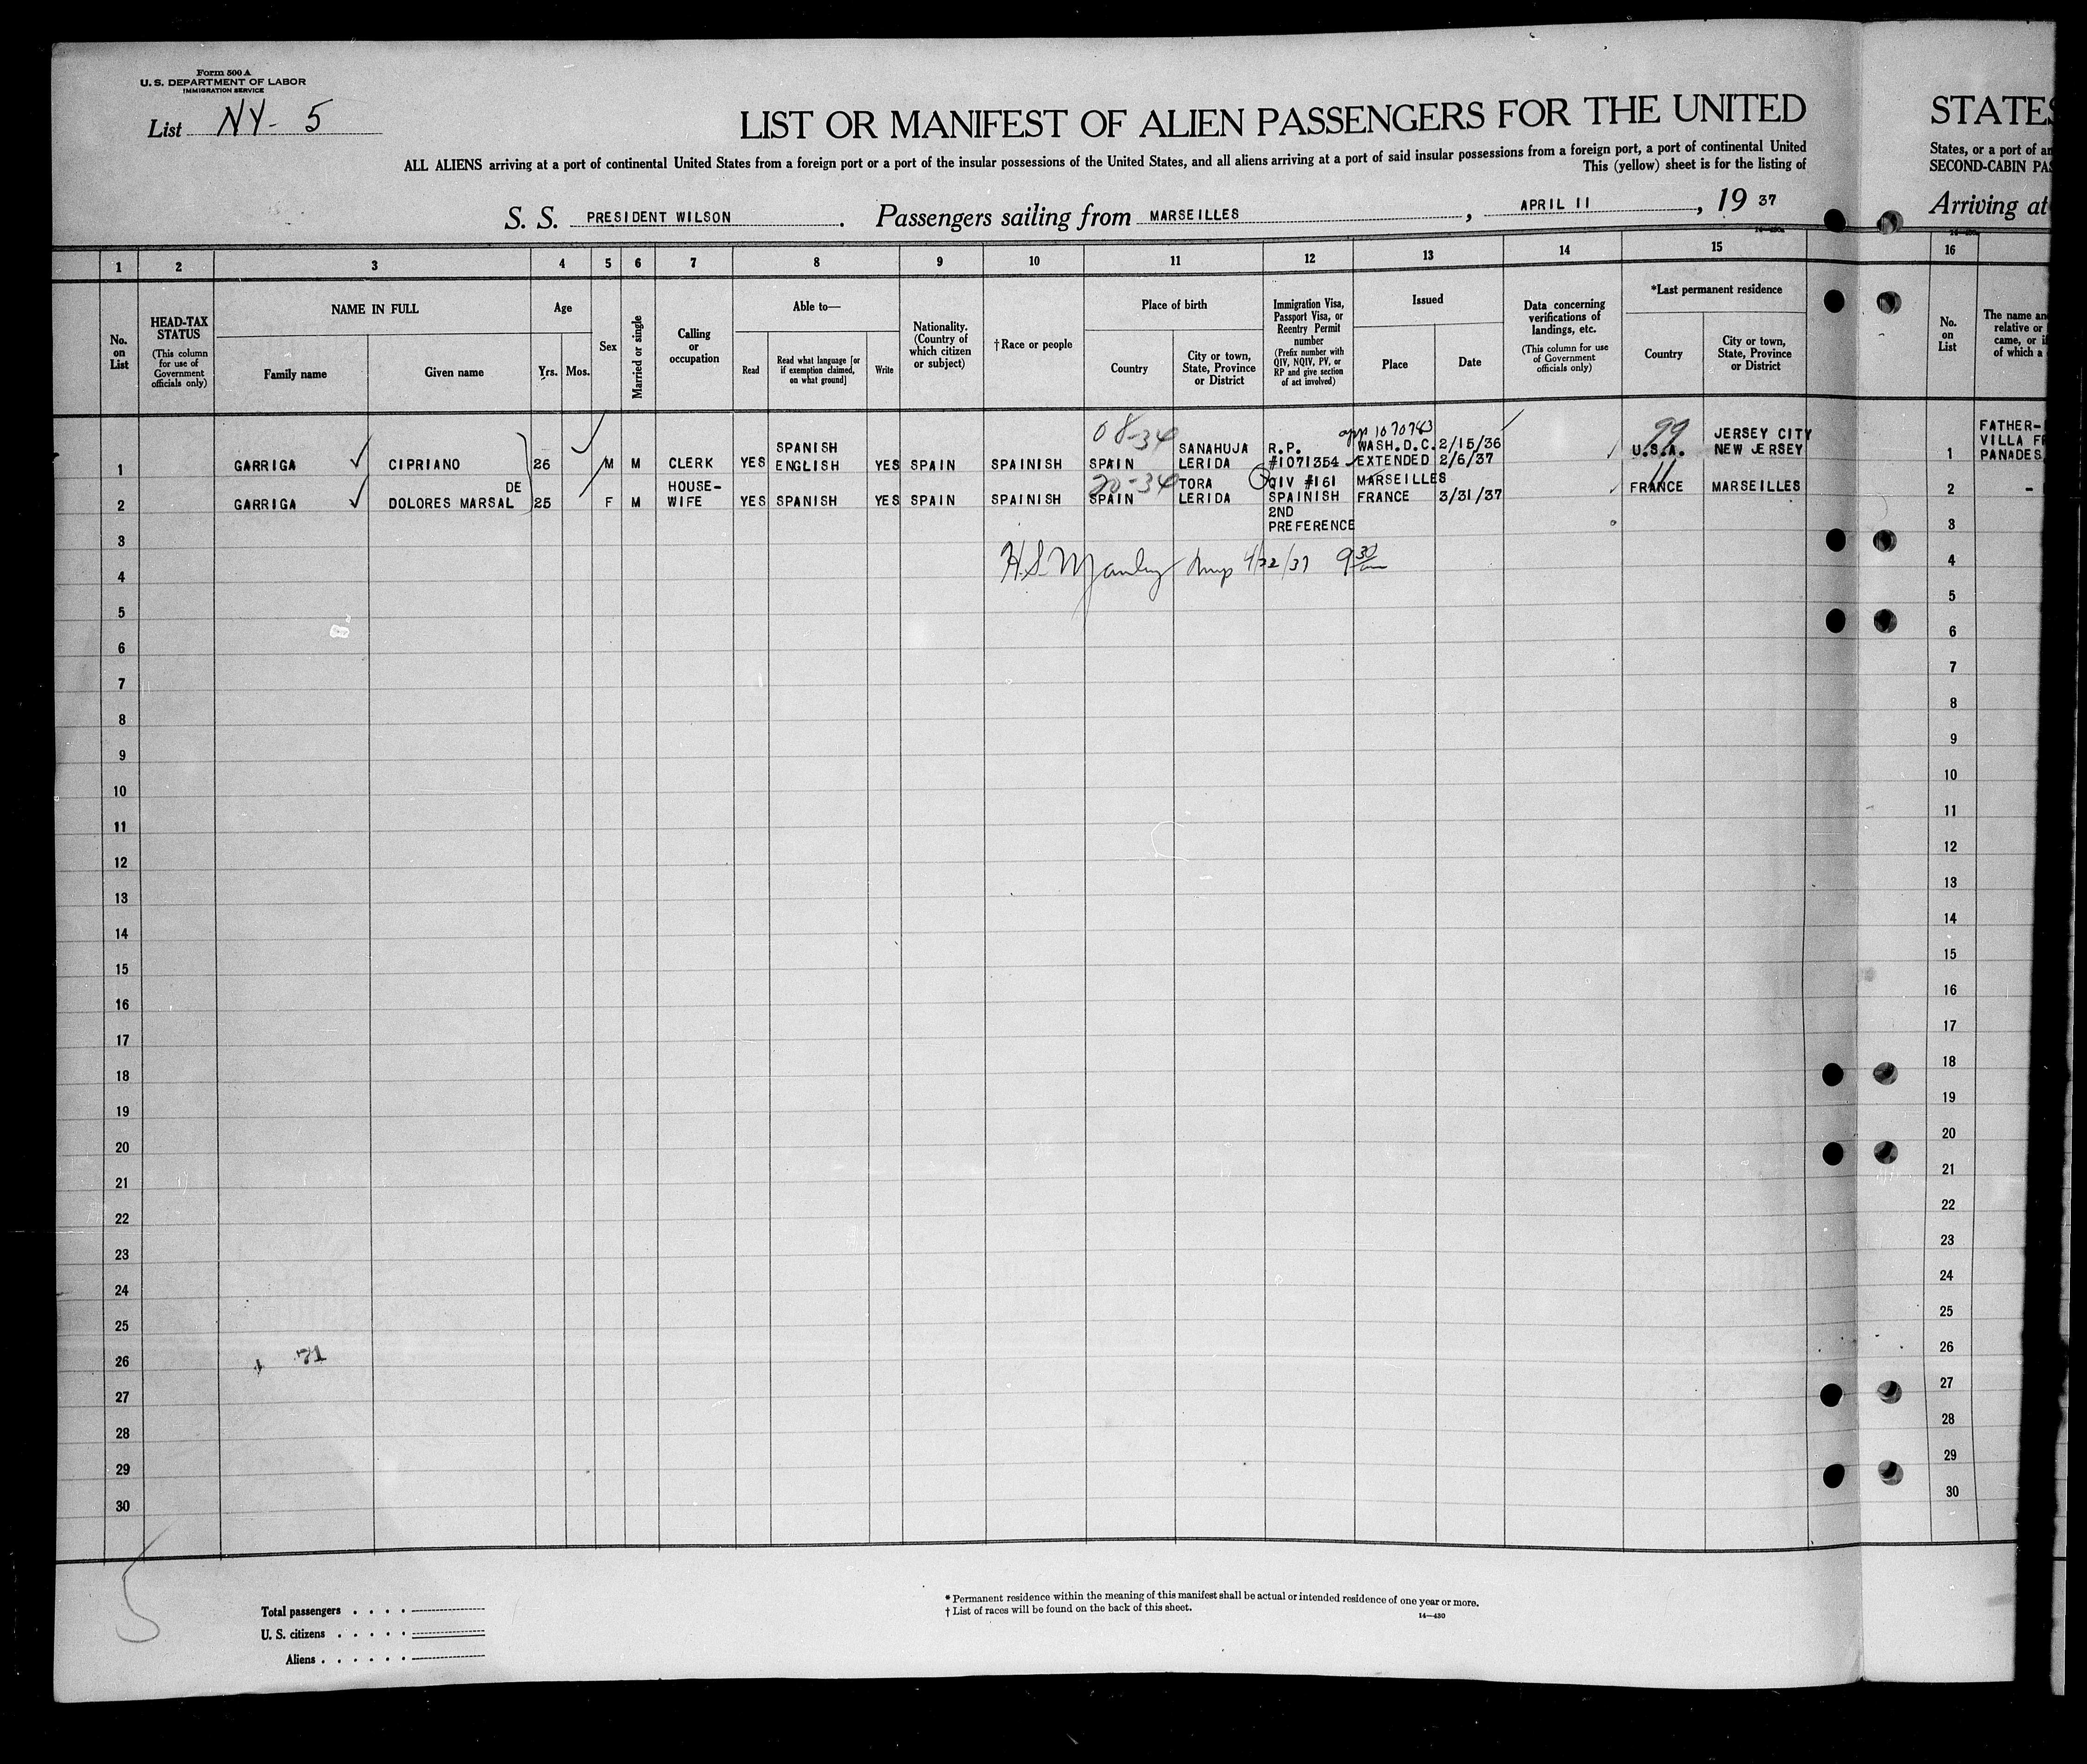 Form 500 A
U. S. DEPARTMENT OF LABOR
IMMIGRATION SERVICE
List NY- 5
LIST OR MANIFEST OF ALIEN PASSENGERS FOR THE UNITED
STATES
ALL ALIENS arriving at a port of continental United States from a foreign port or a port of the insular possessions of the United States, and all aliens arriving at a port of said insular possessions from a foreign port, a port of continental United
States, or a port of
This (yellow) sheet is for the listing of
SECOND-CABIN
S. S. PRESIDENT WILSON. Passengers sailing from MARSEILLES, APRIL 11, 19 37
Arriving at
1 2 3 4 5 6 7 8 9 10 11 12 13 14 15 16
No. on List
HEAD-TAX STATUS
(This column for use of Government officials only)
NAME IN FULL
Family name
Given name
Age
Yrs. Mos.
Sex
Married or single
Calling or occupation
Able to—
Read
Read what language [or if exemption claimed, on what ground]
Write
Nationality. (Country of which citizen or subject)
†Race or people
Place of birth
Country
City or town, State, Province or District
Immigration Visa, Passport Visa, or Reentry Permit number
(Prefix number with QIV, NQIV, PV, or RP and give section of act involved)
Issued
Place
Date
Data concerning verifications of landings, etc.
(This column for use of Government officials only)
*Last permanent residence
Country
City or town, State, Province or District
No. on List
The name
relative or
came, or
of which a
1 GARRIGA CIPRIANO 26 M M CLERK YES SPANISH ENGLISH YES SPAIN SPAINISH 08-34 SPAIN SANAHUJA LERIDA R.P. #1071354 app 1070783 WASH.D.C. 2/15/36 EXTENDED 2/6/37 99 U.S.A. JERSEY CITY NEW JERSEY
1 FATHER-
VILLA
PANADES
2 GARRIGA DE DOLORES MARSAL 25 F M HOUSE-WIFE YES SPANISH YES SPAIN SPAINISH 20-34 SPAIN TORA LERIDA QIV #161 SPAINISH 2ND PREFERENCE MARSEILLES FRANCE 3/31/37 11 FRANCE MARSEILLES
2 -
H.S. Manley 4/22/37 9 30 am
3 3
4 4
5 5
6 6
7 7
8 8
9 9
10 10
11 11
12 12
13 13
14 14
15 15
16 16
17 17
18 18
19 19
20 20
21 21
22 22
23 23
24 24
25 25
26 26
27 27
28 28
29 29
30 30
5
Total passengers
U. S. citizens
Aliens
* Permanent residence within the meaning of this manifest shall be actual or intended residence of one year or more.
† List of races will be found on the back of this sheet.
14—430